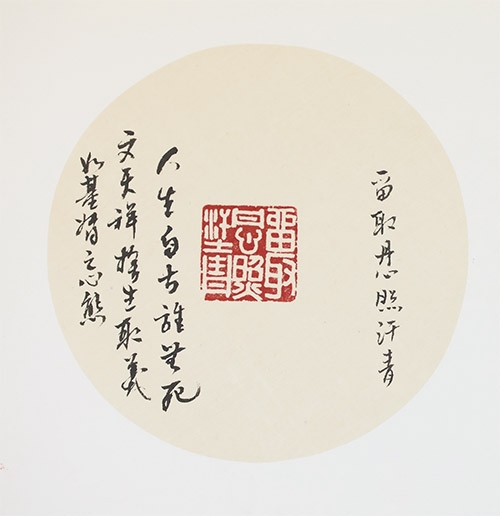 留取丹心照汗青
留取
丹心照
汗青
人生自古誰無死
文天祥捨生取義
如基督之心態